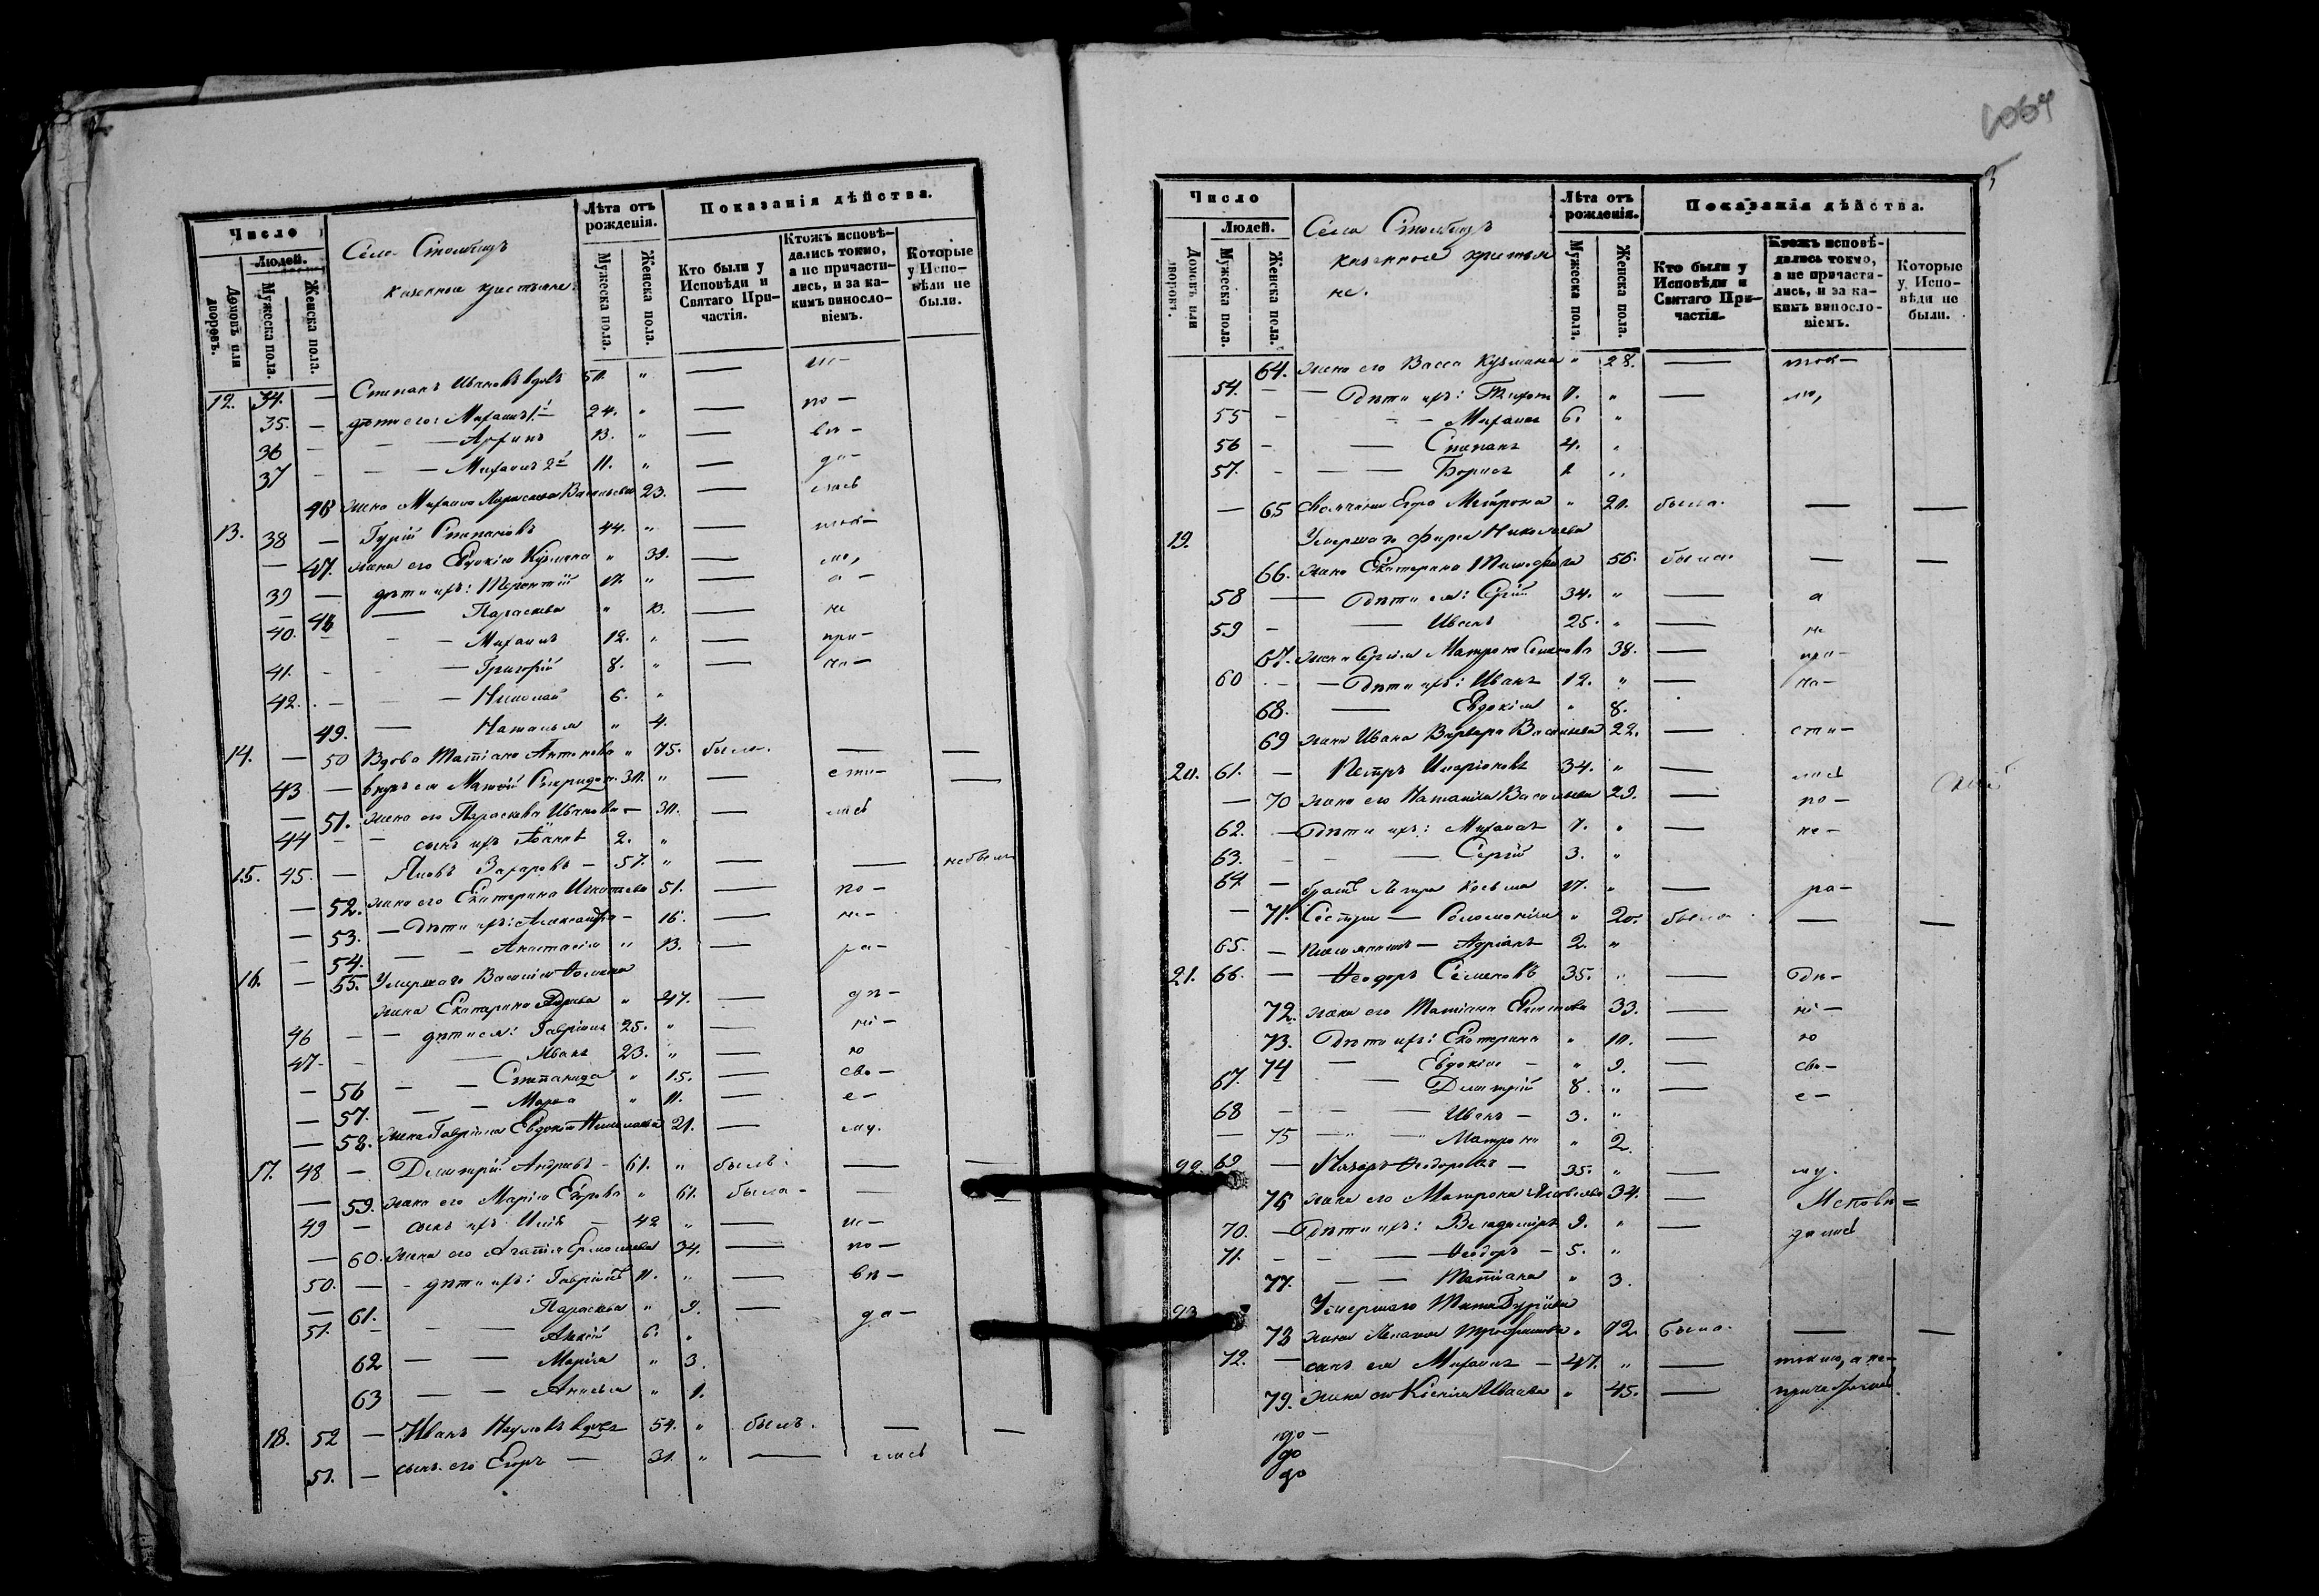 Число
Людей.
Домовъ или дворовъ.
Мужеска пола.
Женска пола.
Села
казенные крестьяне
Лѣта отъ рожденія.
Мужеска пола.
Женска пола.
Показанія дѣйства.
Кто были у Исповѣди и Святаго Причастія.
Ктожъ исповѣдались токмо, а не причастились, и за какимъ винословіемъ.
Которые у Исповѣди не были.
12. 34. — Степанъ Ивановъ вдовъ 50. " — ис-
35. — дѣти его: Михаилъ 1й 24. " — по-
36 — — 13. " — вѣ-
37 — — Михаилъ 2й 11. " — да-
46 жена Михаила Параскева Васильева 23. — лись
13. 38 — Гурій Степановъ 44. " — ток-
— 47. жена его Евдокія Кузмина " 39. — мо,
39 — дѣти ихъ: Терентій 17. " — а-
— 48 — Параскева " 13. — не
40. — — Михаилъ 12. " — при-
41. — — Григорій 8. " — ча-
42. — — Николай 6. "
49. — Наталья " 4.
14. — 50 Вдова Татіана Антонова " 75. была. — —
43 — внукъ ея Матвій 30. " — сти- —
— 51. жена его Параскева Иванова — 30. — лись
44 — — сынъ ихъ Іоаннъ 2. "
15. 45. — Яковъ Захаровъ — 57. " — — небылъ
— 52. жена его Екатерина Игнатьева 51. — по-
— 53. — дѣти ихъ: Александра — 16. — не-
— 54. — — Анастасія " 13. — ра-
16. — 55. Умершаго Василія
жена Екатерина " 47. — дѣ-
46 — — дѣти ея: Гавріилъ 25. " — ні-
47. — — Иванъ 23. " — ю
— 56 — — Степанида " 15. — сво-
— 57. — — Марѳа " 11. — е-
— 58. жена Гавріила Евдокія 21. — му.
17. 48 — Димитрій Андреевъ — 61. " былъ. — —
— 59. жена его Марія Егорова " 61. была — — —
49 — сынъ ихъ Илія — 42 " — ис-
— 60. жена его Агапія Ермолаева 34. — по-
50. — — дѣти ихъ: Гавріилъ 11. " — вѣ-
— 61. Параскева " 9. — да-
51. — — — 6. "
62 — — Марія " 3.
63 — — Анисья " 1.
18. 52 — Иванъ Наумовъ вдовъ 54. " былъ. — —
53. — сынъ его Егоръ — 31. " — лись
3
Число
Людей.
Домовъ или дворовъ.
Мужеска пола.
Женска пола.
Села
казенные крестья
не.
Лѣта отъ рожденія.
Мужеска пола.
Женска пола.
Показанія дѣйства.
Кто были у Исповѣди и Святаго Причастія.
Ктожъ исповѣдались токмо, а не причастились, и за какимъ винословіемъ.
Которые у Исповѣди не были.
64. жена его Васса Кузмина " 28. — ток-
54. — — Дѣти ихъ: 7. " — мо,
55 — — Михаилъ 6. "
56 — — Степанъ 4. "
57. — — — Борисъ 1 "
— 65 Егора Матрона " 20. была. — —
19. Умершаго Николаева
66. жена Екатерина Тимоѳеева 56. была. — —
58 — — Дѣти ея: Сергій 34. " — а
59 — — Иванъ 25. " — не
67. жена Сергія Матрона 38. — при-
60 — — Дѣти ихъ: Иванъ 12. " — ча-
68. — Евдокія " 8.
69 жена Ивана Варвара Васильева 22. — сти-
20. 61. — Петръ Иларіоновъ 34. " — лись
— 70 жена его Наталія Васильева 29. — по-
62. — Дѣти ихъ: Михаилъ 7. " — не-
63. — — — Сергій 3. "
64. — братъ Петра Косьма 17. " — ра-
— 71. Сестра — Соломонія " 20. была — —
65. — — Адріанъ 2. "
21. 66. — Ѳеодоръ Семеновъ 35. " — дѣ-
72. жена его Татіана 33. — ні-
73. Дѣти ихъ: Екатерина " 10. — ю
74 — Евдокія — " 9. — сво-
67. — Димитрій 8. " — е-
68 — — — Иванъ — 3. "
— 75 — — Матрона " 2
22. 69 — Ѳеодоровъ — 35. " — му.
76 жена его Матрона Яковлева 34. — Исповѣ=
70. — Дѣти ихъ: Владиміръ 9. " — дались
71. — — — Ѳеодоръ — 5. "
77. — — Татіана " 3.
23. Умершаго Тита Гурьева
78 жена Трофимова " 72. была. — —
72. — сынъ ея Михаилъ — 47. " — токмо, а не-
79. жена его Ксенія Иванова " 45. —
до —
до
до